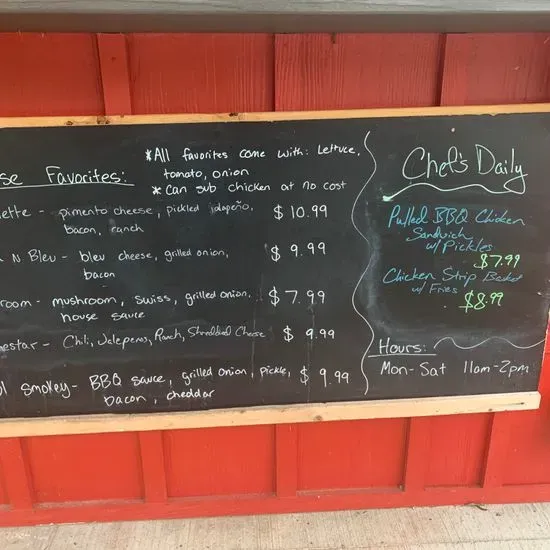 se Favorites:
*All favorites come with: Lettuce,
tomato, onion
* Can sub chicken at no cost
ette - pimento cheese, pickled jalapeño,
bacon, ranch
$ 10.99
N Bleu - bleu cheese, grilled onion,
bacon
$ 9.99
room - mushroom, swiss, grilled onion,
house sauce
$ 7.99
estar - Chili, Jalepeno, Ranch, Shredded Cheese
$ 9.99
ol Smokey - BBQ sauce, grilled onion, pickle,
bacon, cheddar
$ 9.99
Chef's Daily
Pulled BBQ Chicken
Sandwich
w/ Pickles
$7.99
Chicken Strip Basket
w/ Fries
$8.99
Hours:
Mon-Sat 11am-2pm